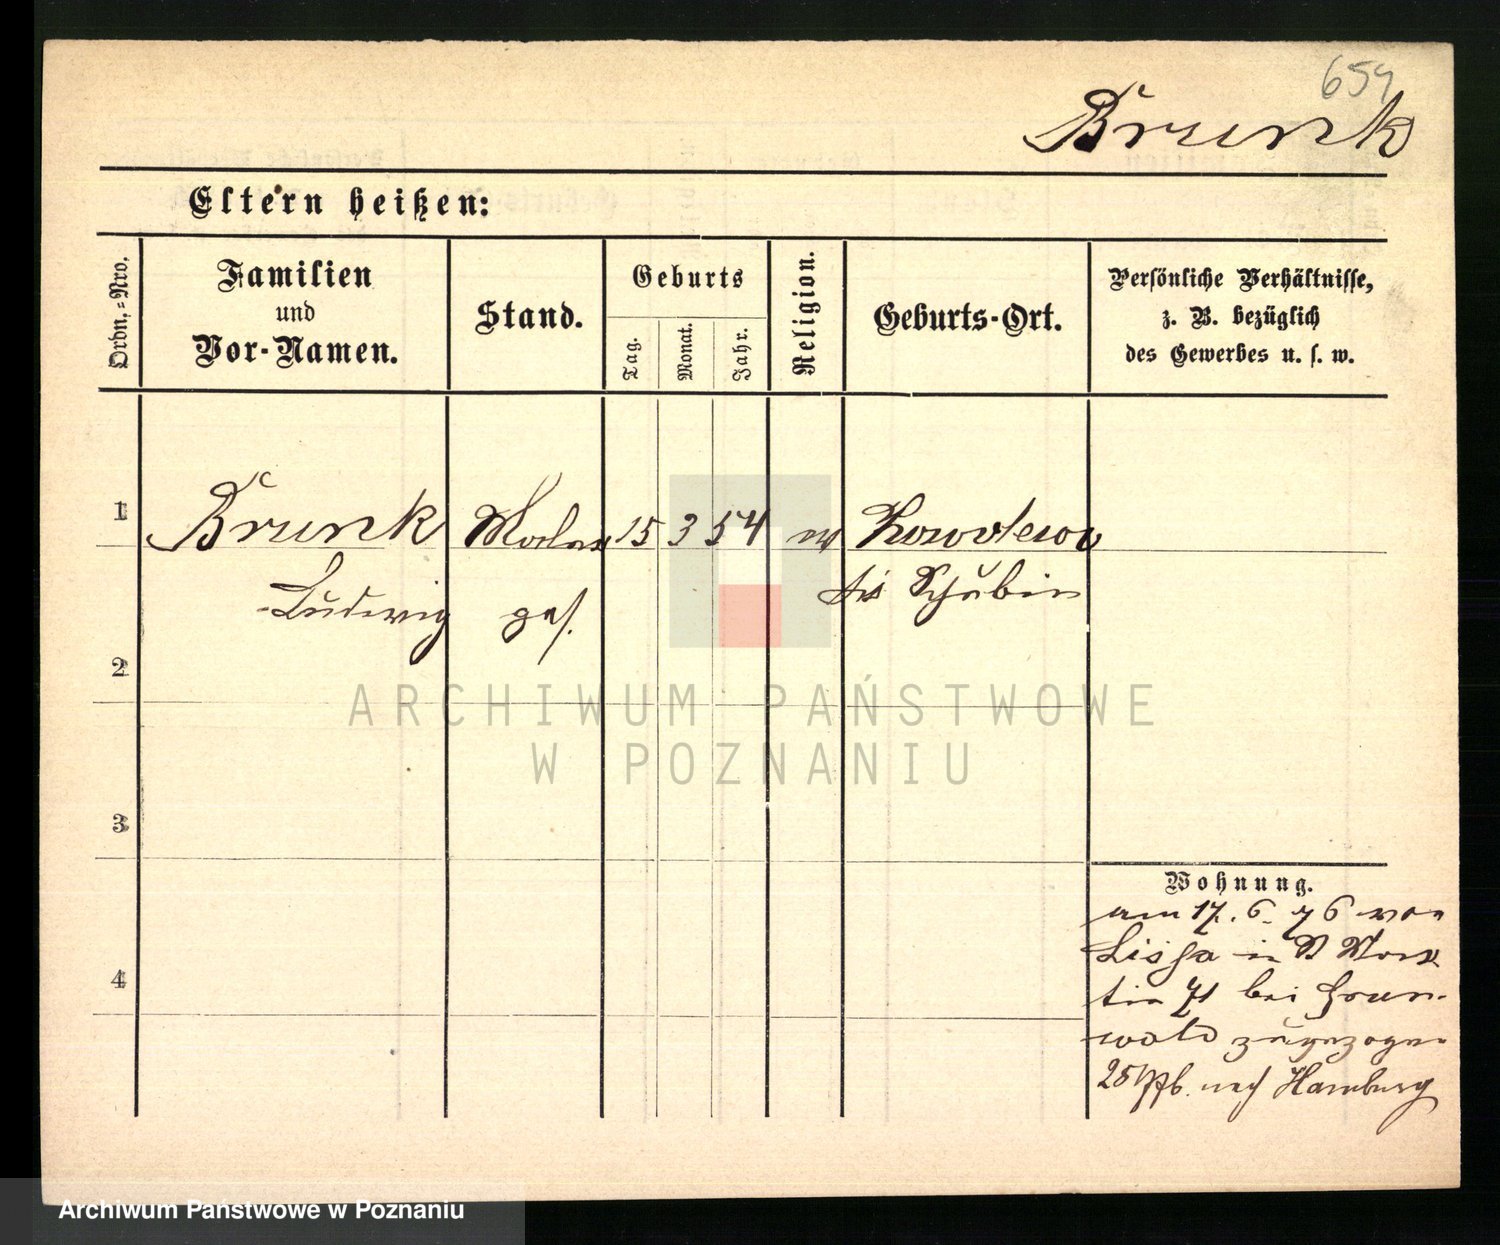 659
Brunk
Eltern heißen:
Ordn.-Nro.
Familien
und
Vor-Namen.
Stand.
Geburts
Tag.
Monat.
Jahr.
Religion.
Geburts-Ort.
Persönliche Verhältnisse,
z. B. bezüglich
des Gewerbes u. s. w.
1
Brunk Maler 15 3 54
Ludwig ges. Schubin
2
ARCHIWUM PAŃSTWOWE
W POZNANIU
3
Wohnung.
am 17. 6. 76 von
Lissa in St Mar
tin 71 bei Grun-
4
wald zugezogen
nach Hamburg
Archiwum Państwowe w Poznaniu